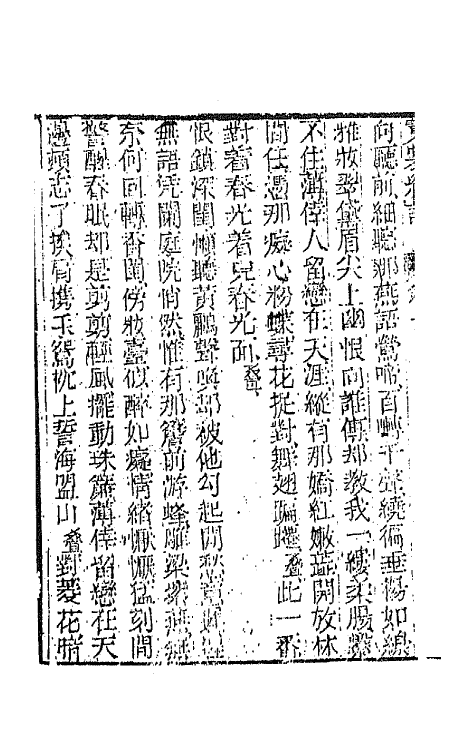 向聽前細聽那燕語鶯啼百囀千聲繞徧垂楊如線
難妝翠黛眉尖上幽恨向誰傳却教我一縷柔腸繫
不住薄倖人留戀在天涯縱有那嬌紅嫩蕊開放林
間任憑那癡心粉蝶尋花捉對舞翅翩躚疊此一番
對着春光着見春光面疊
恨鎖深閨懶聽黃鸝聲喚却被他勾起閒愁
無語凭闌庭院悄然惟有那簷前游蜂雕梁
奈何回轉香閨傍妝臺似醉如癡情緒懨懨猛刻間
警醒春眠却是剪剪輕風擺動珠簾薄倖留戀在天
邊頓忘了挨肩攜玉鴛枕上誓海盟山疊對菱花暗